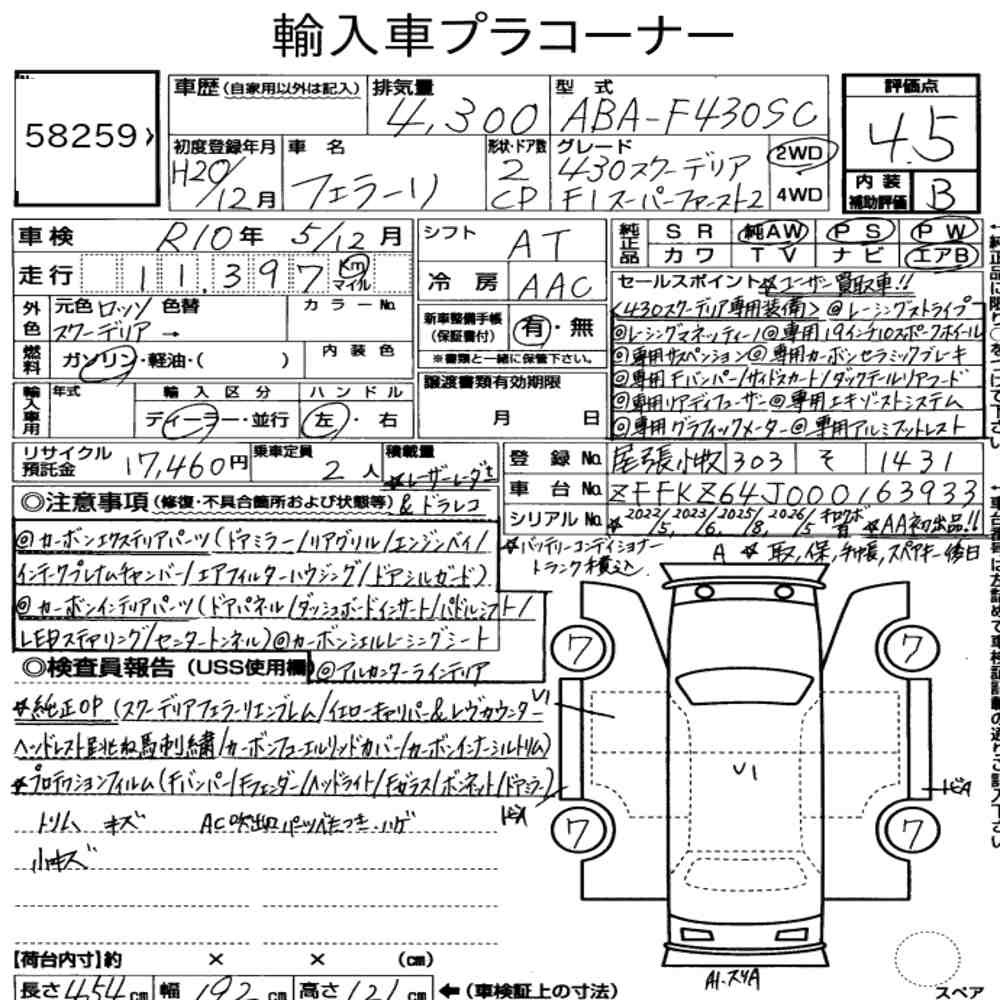 輸入車プラコーナー
58259
車歴 (自家用以外は記入)
排気量 4,300
型式 ABA-F430SC
評価点 4.5
初度登録年月 H20/12月
車名 フェラーリ
形状・ドア数 2 CP
グレード 430スクーデリア F1スーパーファースト2
2WD
4WD
内装補助評価 B
車検 R10年 5/12月
走行 11,397 Km マイル
外色 元色 ロッソスクーデリア 色替 →
カラーNo
燃料 ガソリン・軽油・( )
内装色
輸入車用 年式
輸入区分 ディーラー・並行
ハンドル 左・右
シフト AT
冷房 AAC
新車整備手帳(保証書付) 有・無
※書類と一緒に保管下さい。
譲渡書類有効期限
月 日
純正品 SR 純AW PS PW
カワ TV ナビ エアB
セールスポイント ☆ユーザー買取車!!
<430スクーデリア専用装備> @レーシングストライプ
@レーシングマネッティーノ@専用19インチ10スポークホイル
@専用サスペンション@専用カーボンセラミックブレーキ
@専用Fバンパー/サイドスカート/ダックテールリアフード
@専用リアディフューザー@専用エキゾーストシステム
@専用グラフィックメーター@専用アルミフットレスト
リサイクル預託金 17,460円
乗車定員 2人
積載量
☆レーザーレーダー
& ドラレコ
登録No. 尾張小牧 303 そ 1431
車台No. ZFFKZ64J000163933
シリアルNo. ☆2022/5, 2023/6, 2025/8, 2026/5 有 ☆AA初出品!!
◎注意事項 (修復・不具合箇所および状態等)
@カーボンエクステリアパーツ(ドアミラー/リアグリル/エンジンベイ/
インテークプレナムチャンバー/エアフィルターハウジング/ドアシルガード)
@カーボンインテリアパーツ(ドアパネル/ダッシュボードインサート/パドルシフト/
LEDステアリング/センタートンネル)@カーボンシェルレーシングシート
@アルカンターラインテリア
☆バッテリーコンディショナー
トランク積込
A ☆取,保,手帳,スペアキー後日
◎検査員報告 (USS使用欄)
☆純正OP(スクーデリアフェラーリエンブレム/イエローキャリパー&レヴカウンター
ヘッドレスト跳ね馬刺繍/カーボンフューエルリッドカバー/カーボンインナーシルトリム)
☆プロテクションフィルム(Fバンパー/Fフェンダー/ヘッドライト/Fガラス/ボンネット/ドアミラー)
トリム キズ AC吹出口パーツベたつき・ハゲ
小キズ
7
7
7
7
V1
V1
トビA
トビA
A1・スリA
スペア
【荷台内寸】約 × × (cm)
長さ 454cm 幅 192cm 高さ 121cm ←(車検証上の寸法)